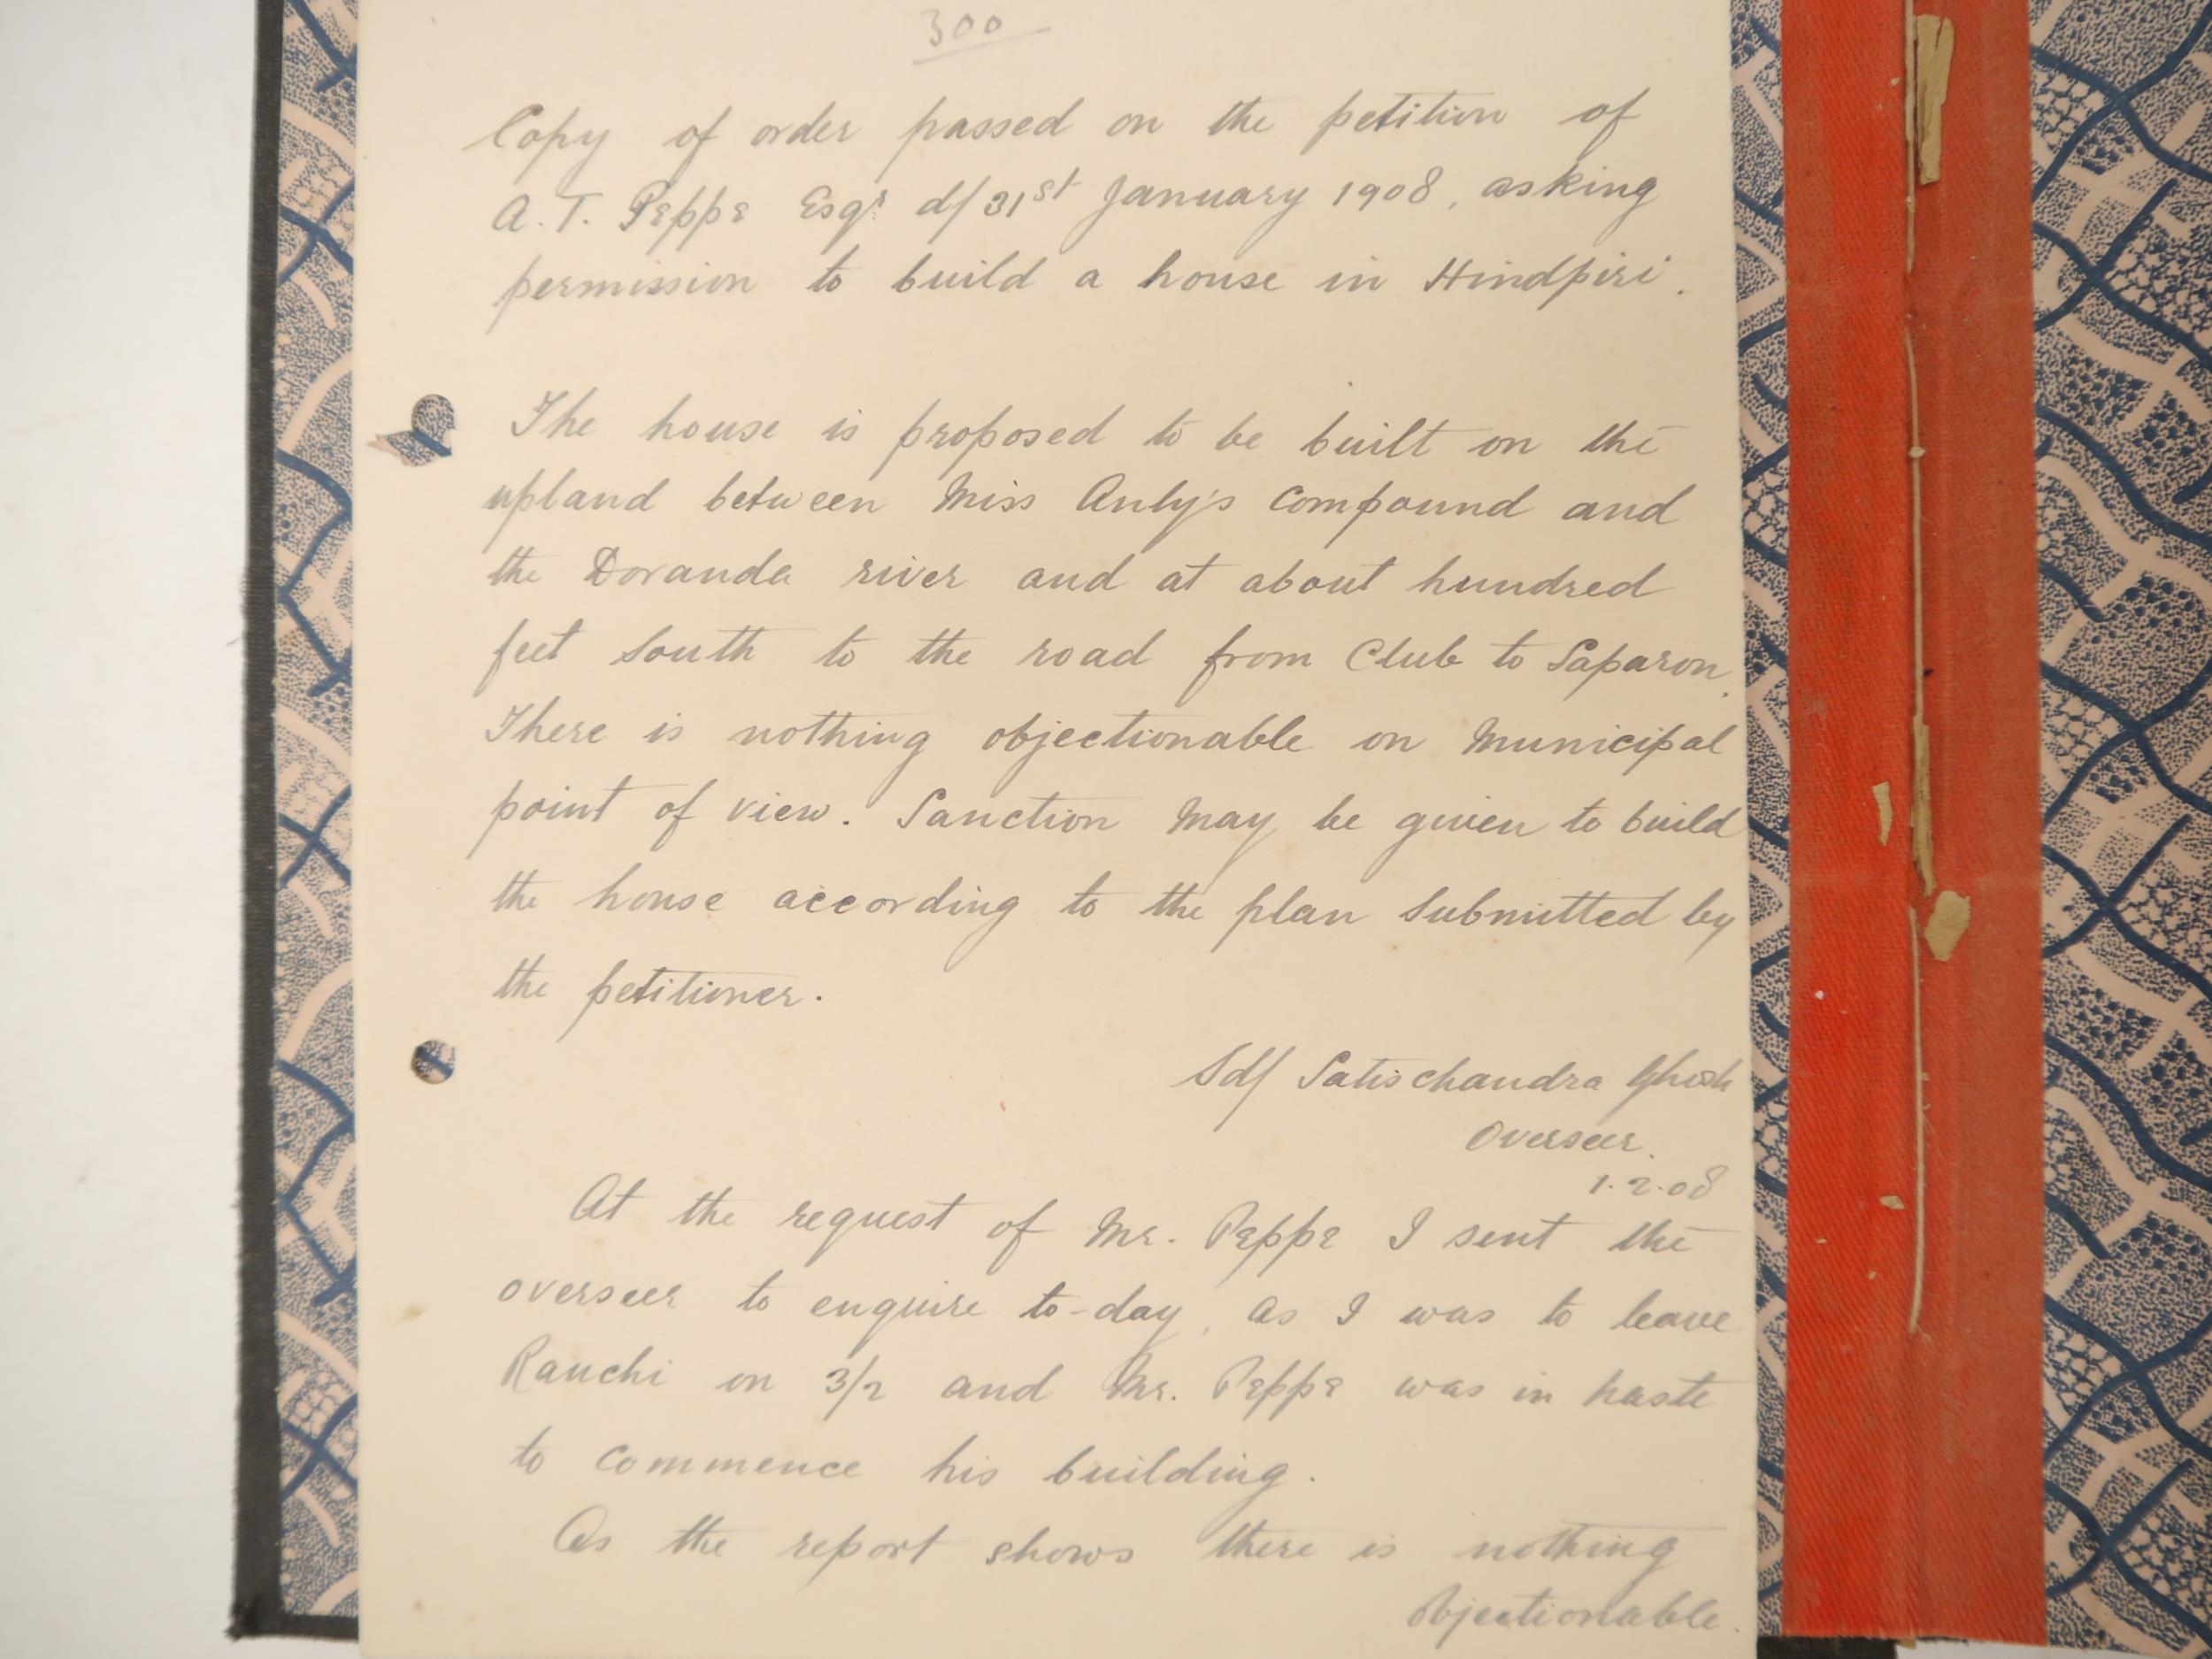 300
Copy of order passed on the petition of
A. T. Peppe Esqr d/ 31st January 1908, asking
permission to build a house in Hindpiri.
The house is proposed to be built on the
upland between Miss Anly's Compound and
the Doranda river and at about hundred
feet South to the road from Club to Saparon.
There is nothing objectionable on Municipal
point of view. Sanction May be given to build
the house according to the plan Submitted by
the petitioner.
Sd/ Satischandra Ghosh
Overseer.
1.2.08
At the request of Mr. Peppe I sent the
overseer to enquire to-day, as I was to leave
Ranchi on 3/2 and Mr. Peppe was in haste
to Commence his building.
As the report shows there is nothing
Objectionable.